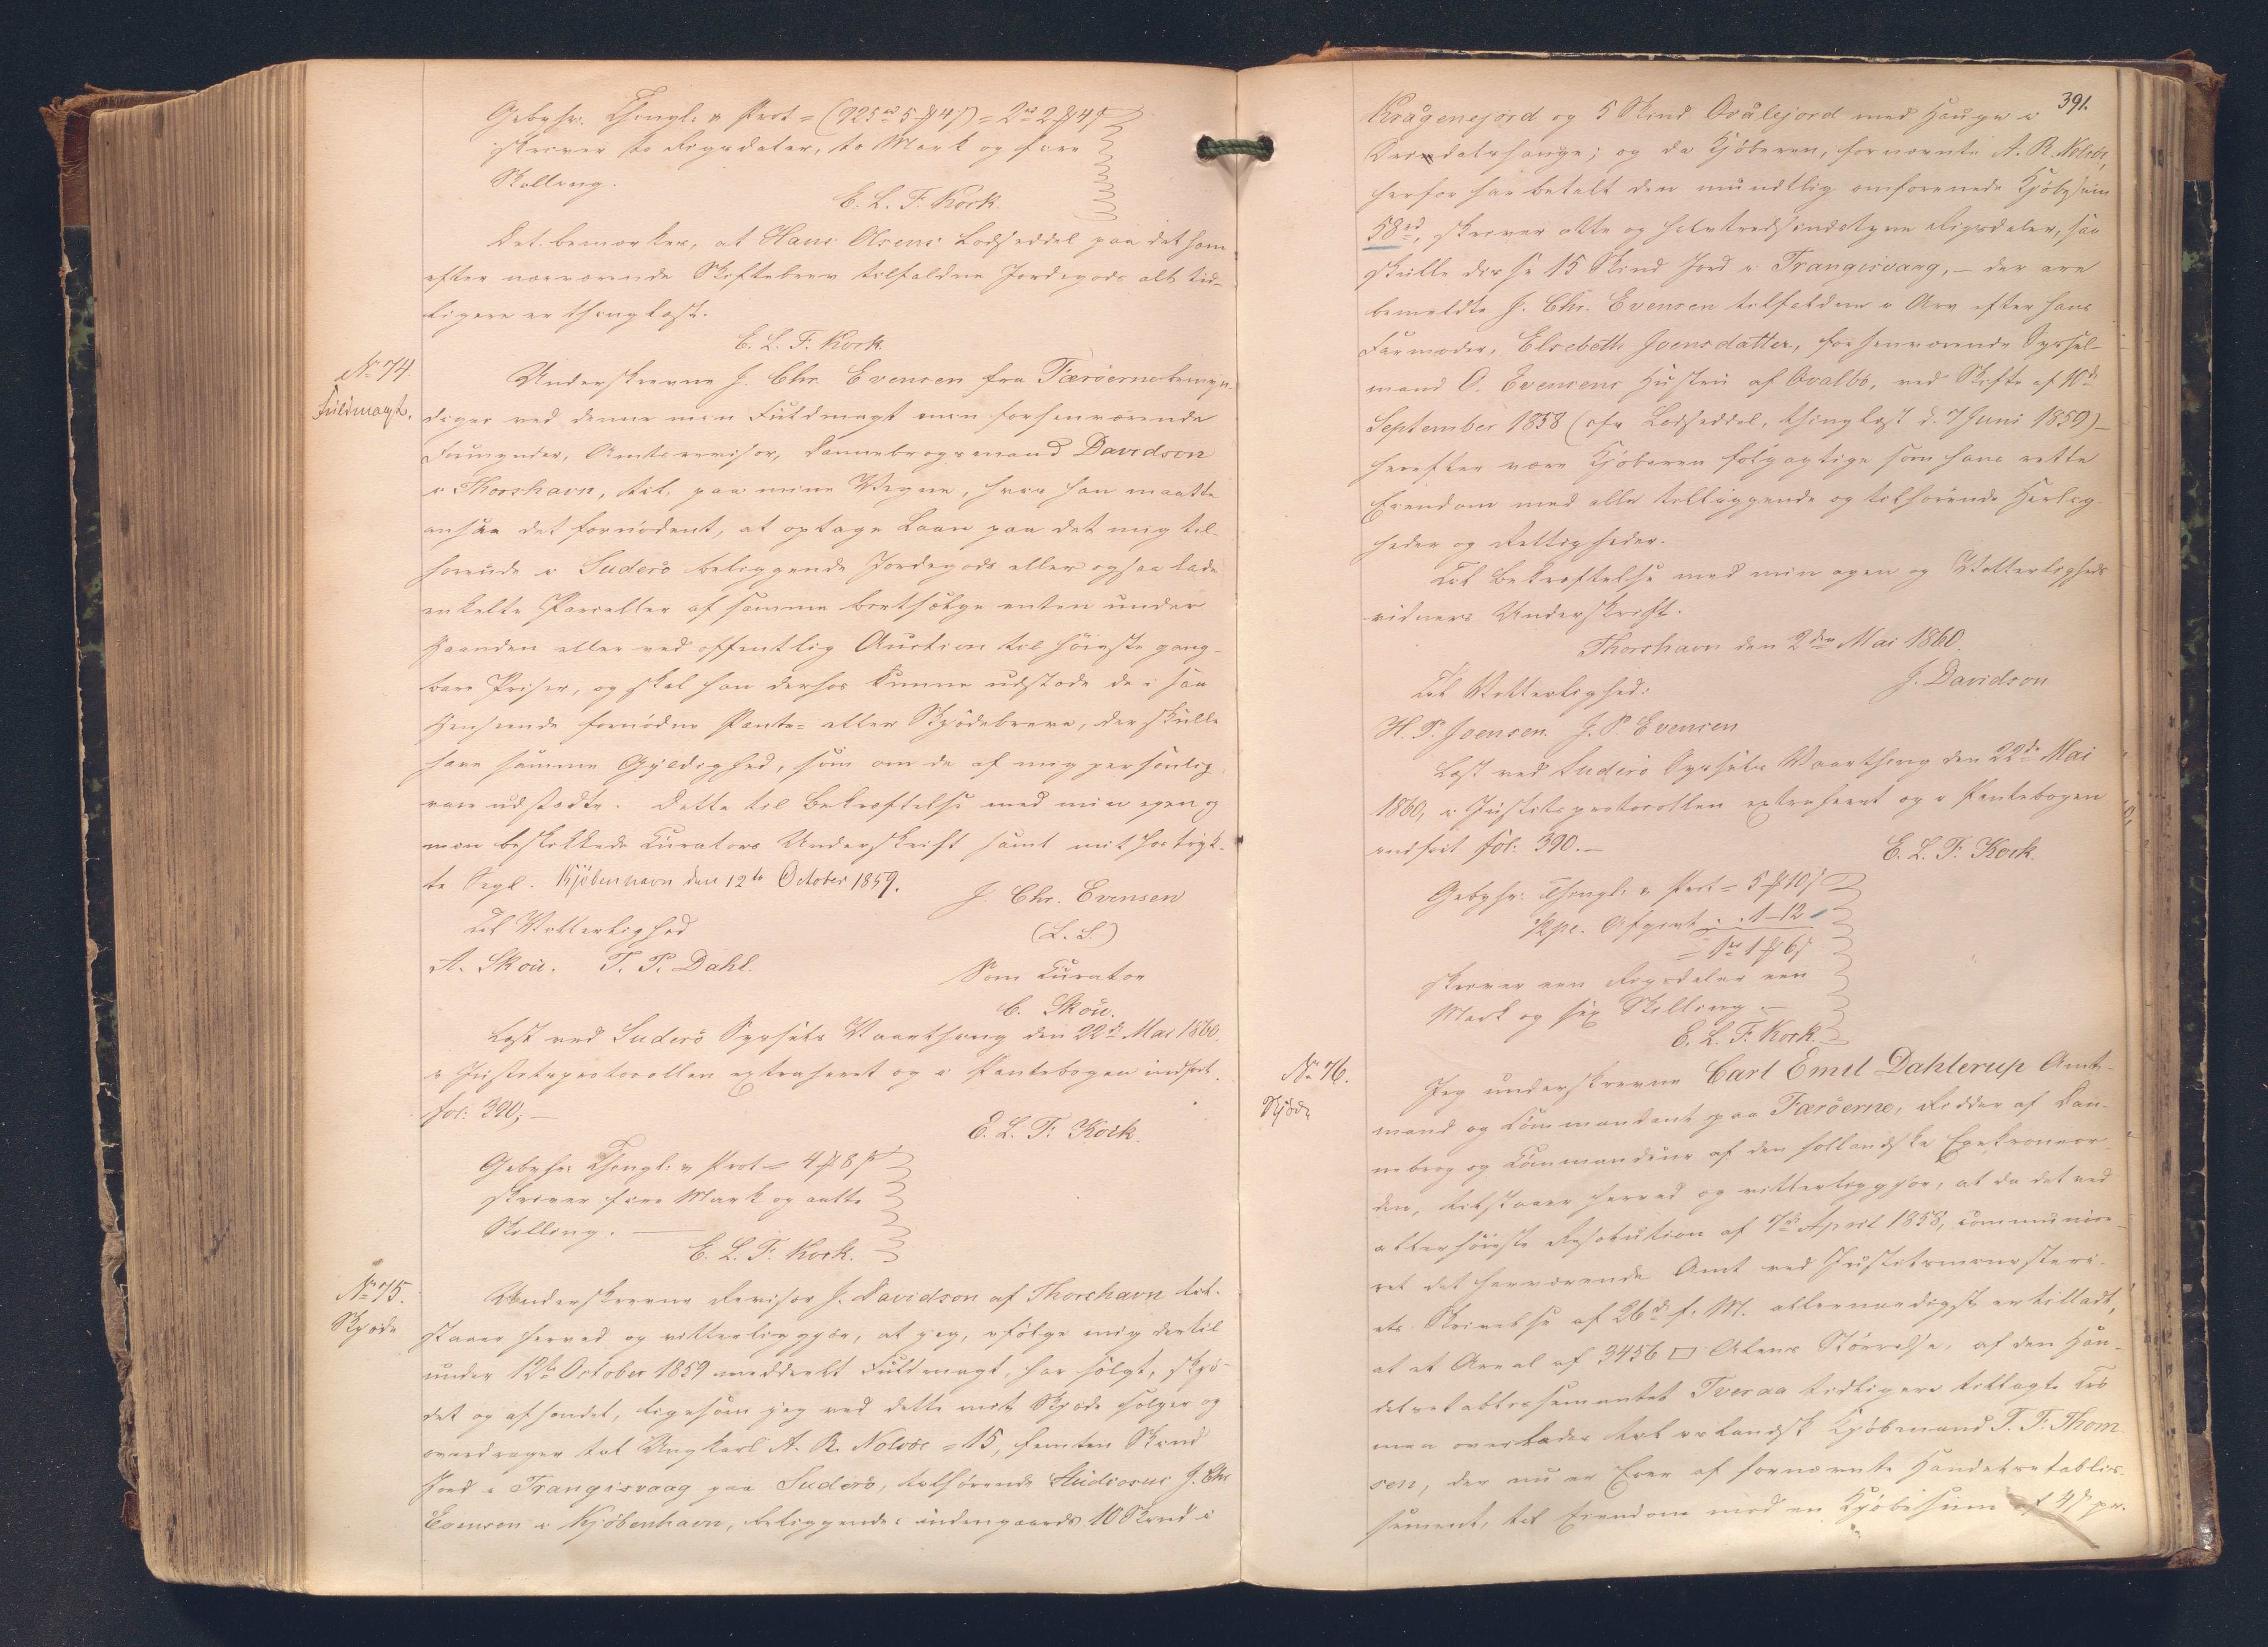 Gebyhr. Thingl: & Prot = (925 rd 5 ℳ 4 ß) = 2 rd 2 ℳ 4 ß
skriver to Rigsdaler, to Mark og fire
Skilling.
E. L. F. Kock.
Det bemærkes, at Hans Olsens Lodseddel paa det ham
efter nærværende Skiftebrev tilfaldne Jordegods alt tid-
ligere er thinglæst.
E. L. F. Kock
No 74.
Fuldmagt.
Underskrevne J. Chr. Evensen fra Færöerne bemyn-
diger ved denne min Fuldmagt min forhenværende
Formynder, Amtsrevisor, Dannebrogsmand Davidson
i Thorshavn, til, paa mine Vegne, hvis han maatte
ansee det fornødent, at optage Laan paa det mig til-
hørende i Suderö beliggende Jordegods eller ogsaa lade
enkelte Parceller af samme bortsælge enten under
Haanden eller ved offentlig Auction til höieste gang-
bare Priser, og skal han derhos kunne udstæde de i saa
Henseende fornödne Pante- eller Skjödebreve, der skulle
have samme Gyldighed, som om de af mig personlig
vare udstædte. Dette til Bekræftelse med min egen og
min beskikkede Curators Underskrift samt mit hostryk-
te Segl. Kjöbenhavn den 12te October 1859.
J. Chr. Evensen
Til Vitterlighed
(L. S.)
A. Skou. T. P. Dahl.
Som Curator
C. Skou.
Læst ved Suderö Syssels Vaarthing den 22de Mai 1860,
i Justitsprotocollen extraheret og i Pantebogen indført
fol: 390, —
E. L. F. Kock.
Gebyhr: Thingl: & Prot = 4 ℳ 8 ß
skriver fire Mark og aatte
Skilling. —
E. L. F. Kock.
No 75.
Skjøde
Underskrevne Revisor J. Davidson af Thorshavn til-
staaer herved og vitterliggjør, at jeg, ifölge mig dertil
under 12te October 1859 meddeelt Fuldmagt, har solgt, skjö-
det og afhændet, ligesom jeg ved dette mit Skjøde sælger og
overdrager til Ungkarl A. R. Nolsöe = 15, femten Skind
Jord i Trangisvaag paa Suderö, tilhörende Studiosus J. Chr
Evensen i Kjöbenhavn, beliggende indengaards 10 Skind i
391.
Kraagenejord og 5 Skind Ovalejord med Hauge i
Deirdalshauge; og da Kjöberen, fornævnte A. R. Nolsöe,
herfor har betalt den mundtlig omforenede Kjöbesum
58 rd, skriver otte og halvtredsindstyve Rigsdaler, saa
skulle disse 15 Skind Jord i Trangisvaag, — der ere
bemeldte J. Chr. Evensen tilfaldne i Arv efter hans
Farmoder, Elsebeth Joensdatter, forhenværende Syssel-
mand O. Evensens Hustru af Qvalbö, ved Skifte af 10de
September 1858 (cfr Lodseddel, thinglæst d. 7 Juni 1859) —
herefter være Kjöberen følgagtige som hans rette
Eiendom med alle tilliggende og tilhörende Herlig-
heder og Rettigheder.
Til Bekræftelse med min egen og Vitterligheds
vidners Underskrift.
Thorshavn den 2den Mai 1860.
J. Davidson
Til Vitterlighed:
H. P. Joensen. J. P. Evensen
Læst ved Suderö Syssels Vaarthing den 22de Mai
1860, i Justitsprotocollen extraheret og i Pantebogen
indført fol: 390. —
E. L. F. Kock.
Gebyhr: Thingl: & Prot = 5 ℳ 10 ß
½ pC. Afgivt: 1 – 12
= 1 rd 1 ℳ 6 ß
skriver een Rigsdaler een
Mark og sex Skilling. —
E. L. F. Kock.
No 76.
Skjøde
Jeg underskrevne Carl Emil Dahlerup Amt-
mand og Commandant paa Færöerne, Ridder af Dan-
nebrog og Commandeur af den hollandske Egekroneor-
den, tilstaaer herved og vitterliggjør, at da det ved
allerhöieste Resolution af 7de April 1858, communice-
ret det herværende Amt ved Justitsministeri-
ets Skrivelse af 26de s. M. allernaadigst er tilladt,
at et Areal af 3456 □ Alens Störrelse, af den Han-
delsetablissementet Tveraa tidligere tillagte Trö
maa overlades til islandsk Kjöbmand T. F. Thom-
sen, der nu er Eier af fornævnte Handelsetablis-
sement, til Eiendom mod en Kjöbesum af 4 ß pr.